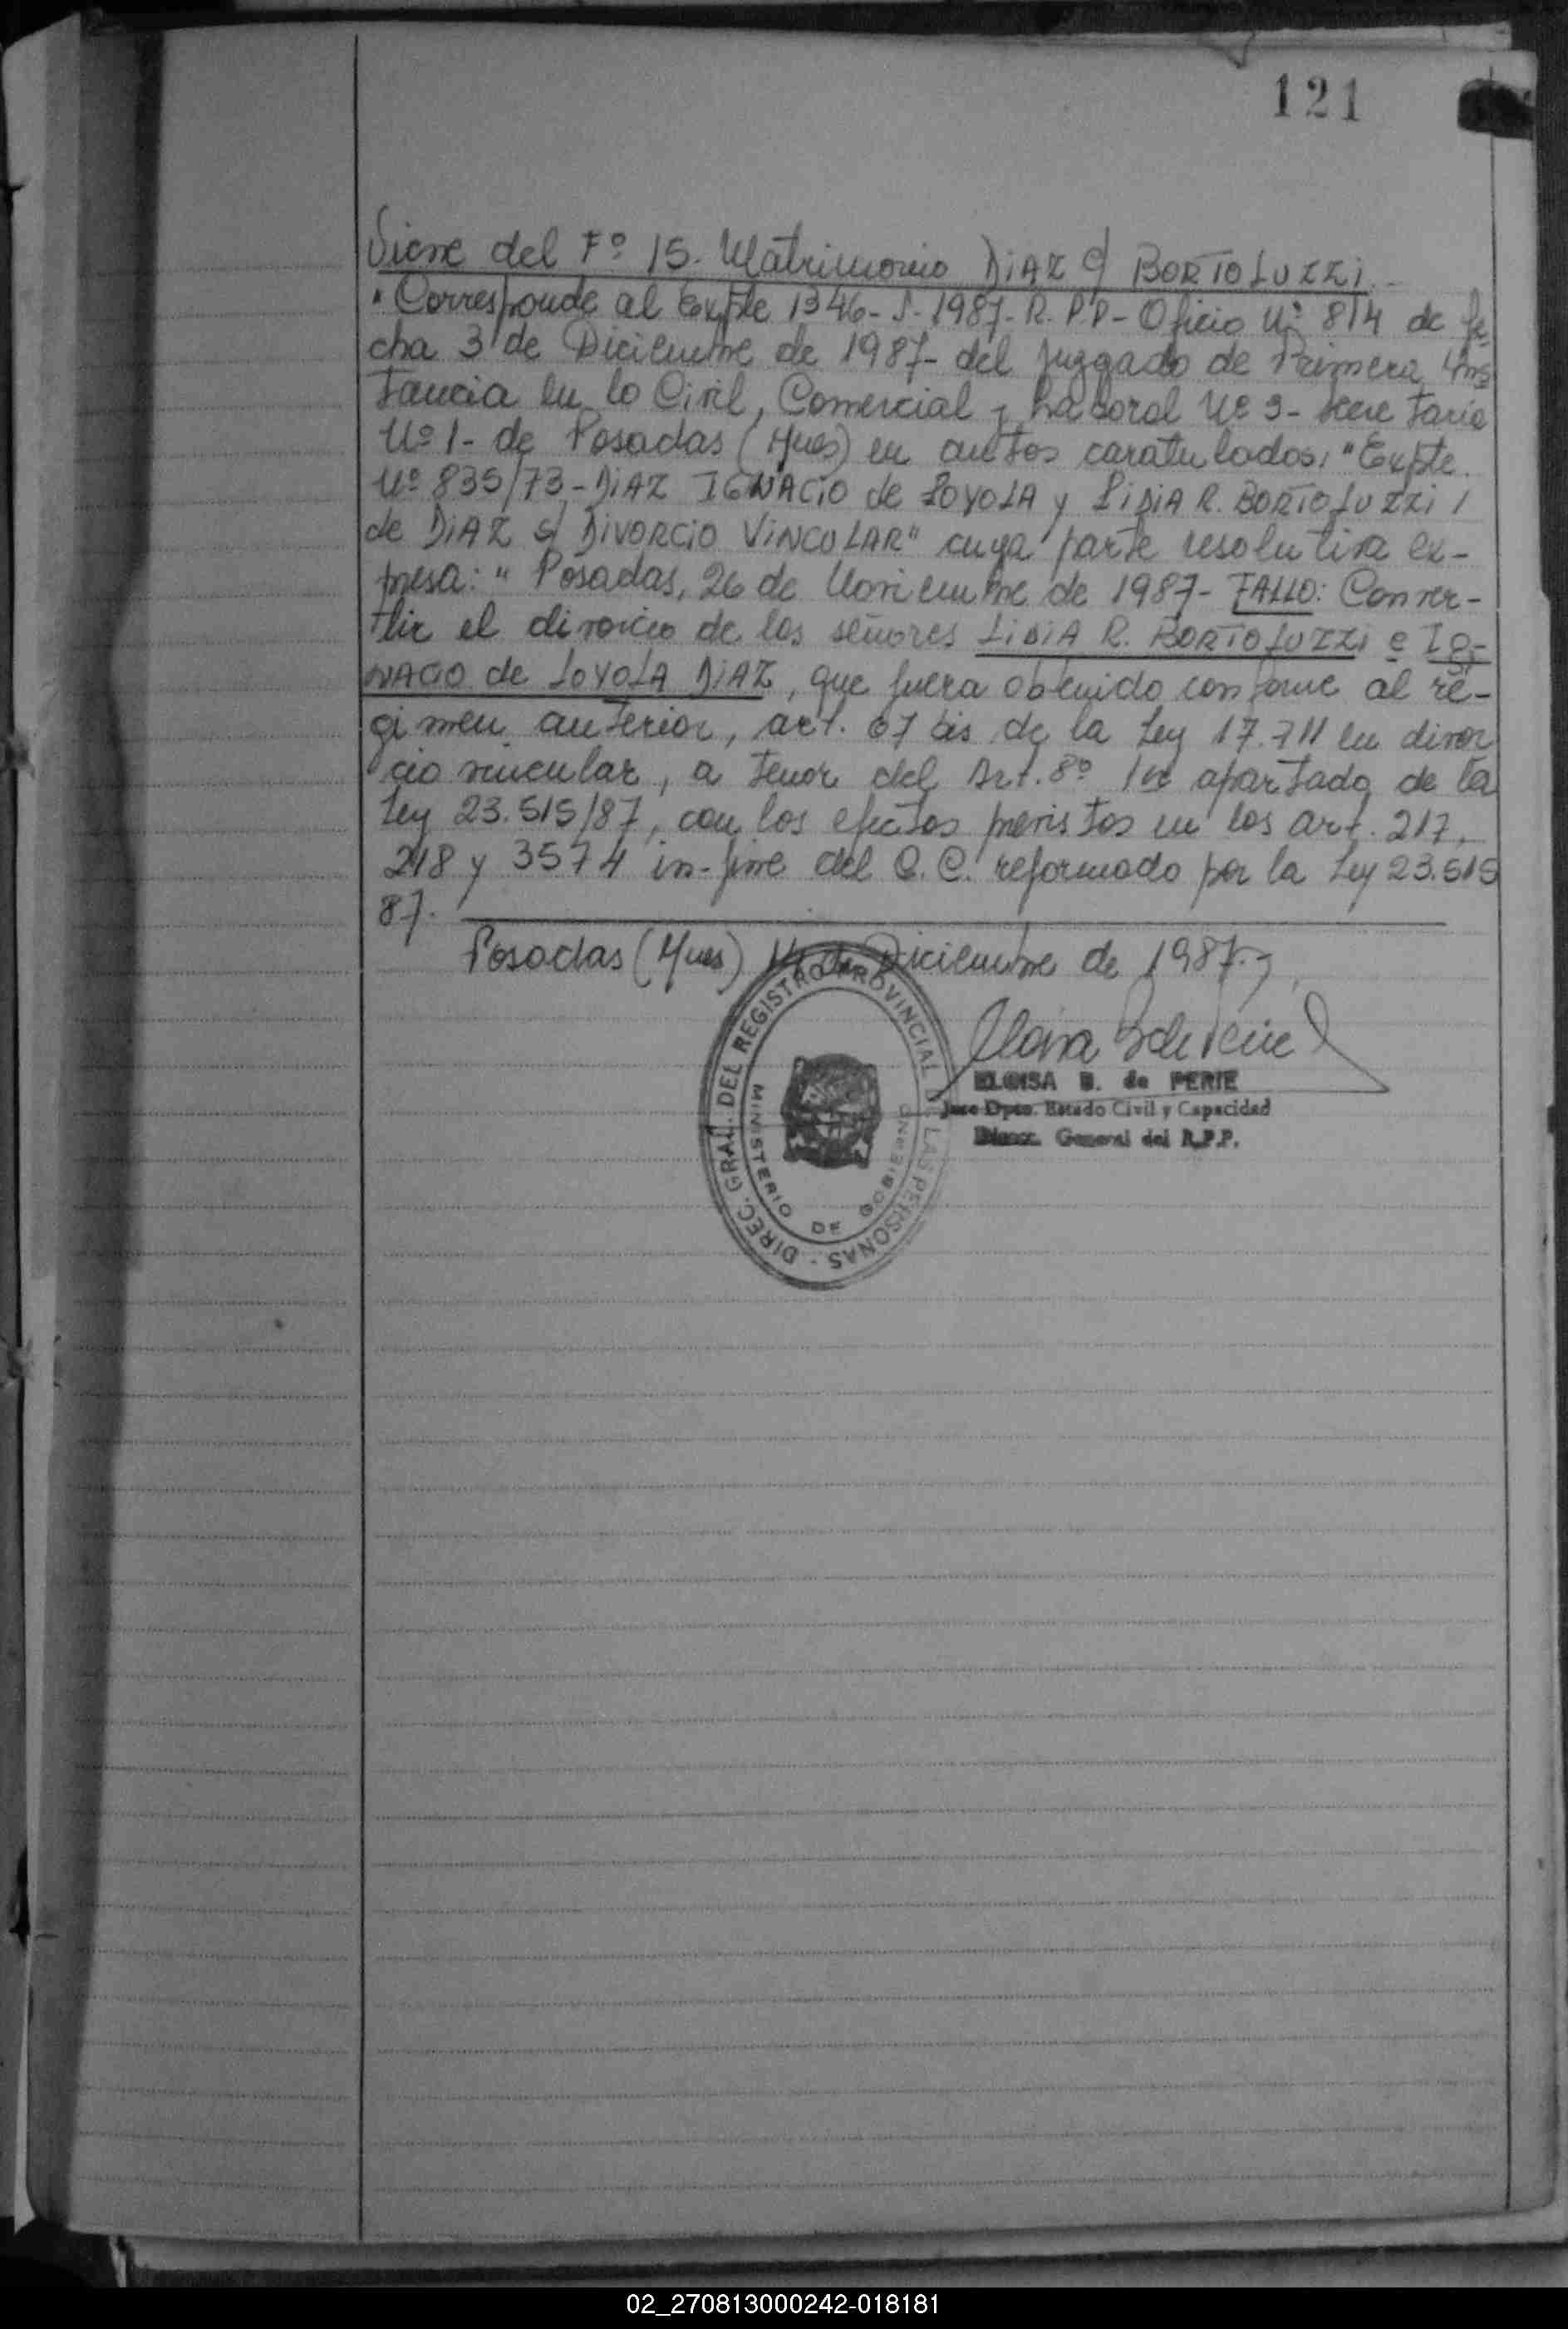 121
Viene del Fº 15. Matrimonio DiAZ c/ BORTOLUZZI.-
"Corresponde al Expte 1346-S-1987-R.P.P-Oficio Nº 814 de fe
cha 3 de Diciembre de 1987- del Juzgado de Primera Ins
tancia en lo Civil, Comercial y Laboral Nº 3- Secretaria
Nº 1- de Posadas (Mnes) en autos caratulados, "Expte.
Nº 835/73-DiAZ IGNACiO de LOYOLA y LiDiA R. BORTOLUZZI
de DiAZ s/ DiVORCiO ViNCULAR" cuya parte resolutiva ex-
presa: " Posadas, 26 de Noviembre de 1987- FALLO: Conver-
tir el divorcio de los señores LiDiA R. BORTOLUZZI e IG-
NACiO de LOYOLA DiAZ, que fuera obtenido conforme al ré-
gimen anterior, art. 67 bis de la Ley 17.711 en divor
cio vincular, a tenor del Art. 8º 1er apartado de la
Ley 23.515/87, con los efectos previstos en los art. 217,
218 y 3574 in-fine del C.C. reformado por la Ley 23.515
87.
Posadas (Mnes) 14 de Diciembre de 1987.-
DIREC. GRAL. DEL REGISTRO PROVINCIAL DE LAS PERSONAS -
MINISTERIO DE GOBIERNO
ELOISA B. de PERIE
Jefe Dpto. Estado Civil y Capacidad
Direcc. General del R.P.P.
02_270813000242-018181